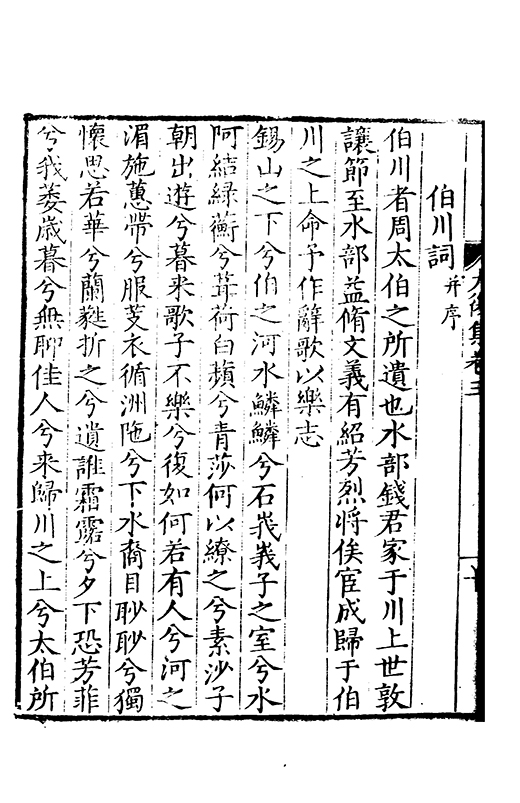 伯川詞并序
伯川者周太伯之所遺也水部錢君家于川上世敦
讓節至水部益脩文義有紹芳烈将俟宦成歸于伯
川之上命予作辭歌以樂志
錫山之下兮伯之河水鱗鱗兮石峩峩子之室兮水
阿結緑蘅兮葺荷白蘋兮青莎何以繚之兮素沙子
朝出遊兮暮来歌子不樂兮復如何若有人兮河之
湄施蕙帶兮服芰衣循洲陁兮下水裔目眇眇兮獨
懷思若華兮蘭蕤折之兮遺誰霜露兮夕下恐芳菲
兮我萎歳暮兮無聊佳人兮来歸川之上兮太伯所